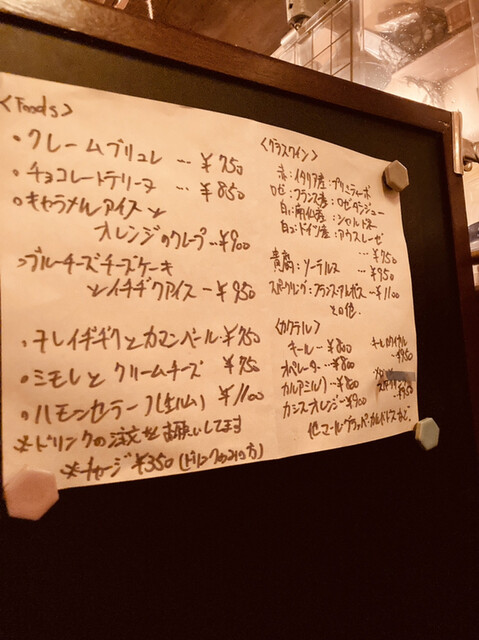 <Foods>
・クレームブリュレ … ¥750
・チョコレートテリーヌ … ¥850
・キャラメルアイスと
オレンジのクレープ … ¥900
・ブルーチーズチーズケーキ
とイチヂクアイス … ¥950
・干しイチヂクとカマンベール・¥750
・ミモレとクリームチーズ ¥750
・ハモンセラーノ(生ハム) ¥1100
※ドリンクの注文をお願いしてます
※チャージ¥350(ドリンクのみの方)
<グラスワイン>
赤:イタリア産:プリミティーボ
ロゼ:フランス産:ロゼダンジュー
白:南仏産:シャルドネ
白:ドイツ産:アウスレーゼ
… ¥750
貴腐:ソーテルヌ … ¥950
スパークリング:フランス・アルザス … ¥1100
その他.
<カクテル>
キール … ¥800
キールロワイヤル
¥950
オペレーター … ¥800
カルアミルク … ¥800
¥950
カシスオレンジ … ¥900
他マール・グラッパ・カルバドスなど